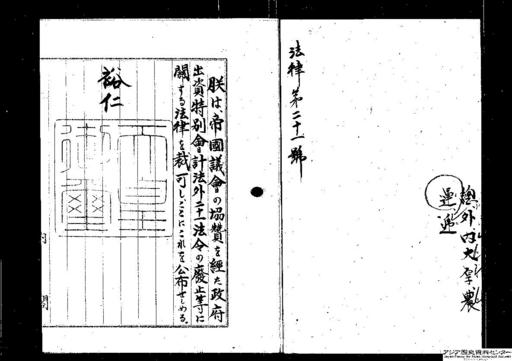 法律第二十一號
總外内大厚農
運逓
朕は、帝國議會の協贊を經た政府
出資特別會計法外二十一法令の廢止等に
關する法律を裁可し、ここにこれを公布せしめる。
裕仁
天皇御璽
アジア歴史資料センター